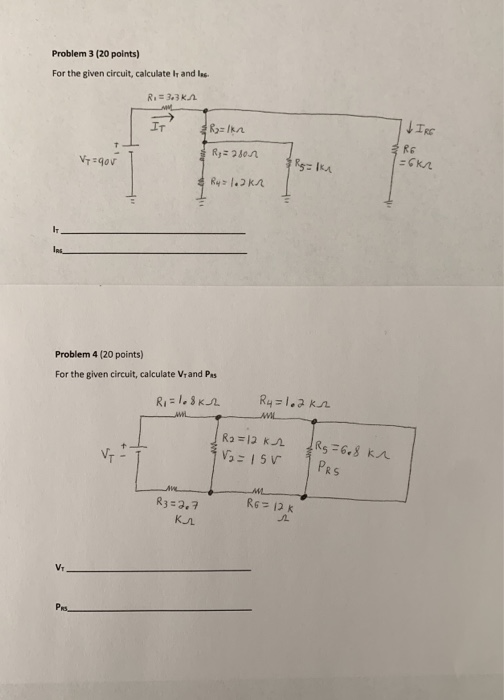 Problem 3 (20 points)
For the given circuit, calculate IT and IR6.
R1 = 3.3 KΩ
IT
R2 = 1KΩ
↓ IR6
VT = 90V
+
-
R3 = 280Ω
R5 = 1KΩ
R6
= 6KΩ
R4 = 1.2 KΩ
IT
IR6
Problem 4 (20 points)
For the given circuit, calculate VT and PR5
R1 = 1.8 KΩ
R4 = 1.2 KΩ
R2 = 12 KΩ
V2 = 15 V
R5 = 6.8 KΩ
PR5
VT
+
-
R3 = 2.7
KΩ
R6 = 12 K
Ω
VT
PR5